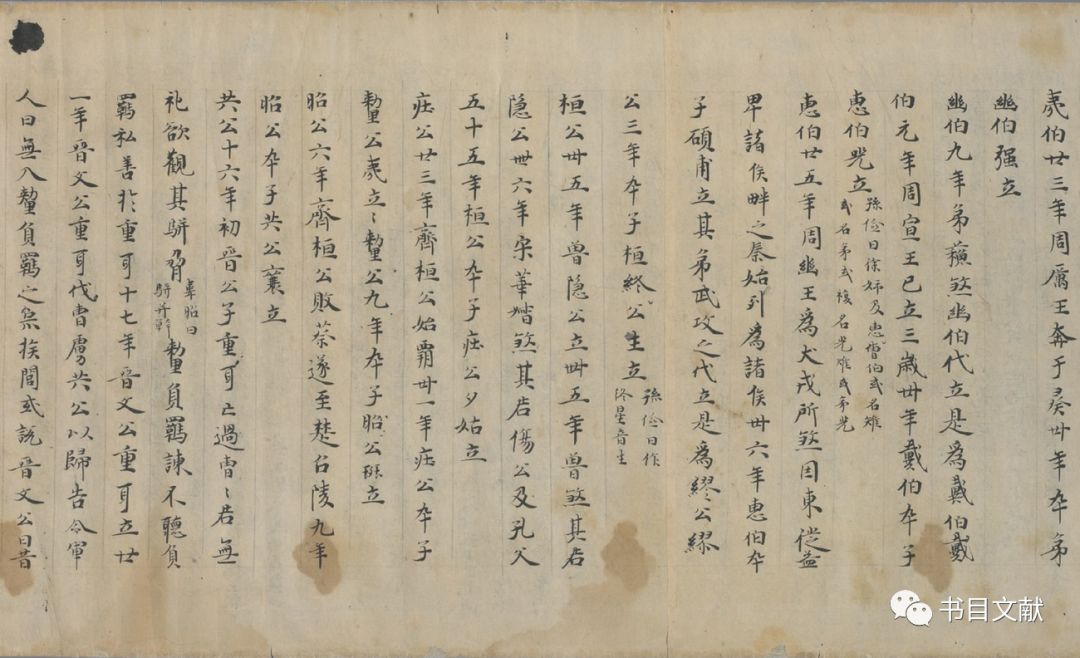 夷伯卅三年周厲王奔于彘卅年卒弟
幽伯强立
幽伯九年弟蘓煞幽伯代立是為戴伯戴
伯元年周宣王已立三歳卅年戴伯卒子
惠伯兕立孫儉曰徐姉及忠曹伯或名雉或名弟或複名兕雉或弟兕
惠伯廿五年周幽王為犬戎所煞因東徙益
卑諸侯畔之秦始列為諸侯卅六年惠伯卒
子碩甫立其弟武攻之代立是為繆公繆
公三年卒子桓終公生立孫儉曰作終星音生
桓公卅五年魯隱公立卌五年魯煞其君
隱公卌六年宋華督煞其君傷公及孔父
五十五年桓公卒子庄公夕姑立
庄公廿三年齊桓公始霸卅一年庄公卒子
釐公夷立〻釐公九年卒子昭公班立
昭公六年齊桓公敗蔡遂至楚召陵九年
昭公卒子共公襄立
共公十六年初晉公子重耳亡過曹〻君無
礼欲觀其駢脅韋昭曰駢并幹釐負羈諫不聽負
羈私善於重耳十七年晉文公重耳立廿
一年晉文公重耳伐曹虜共公以歸告令軍
人曰無入釐負羈之宗挨閭或説晉文公曰昔
书目文献